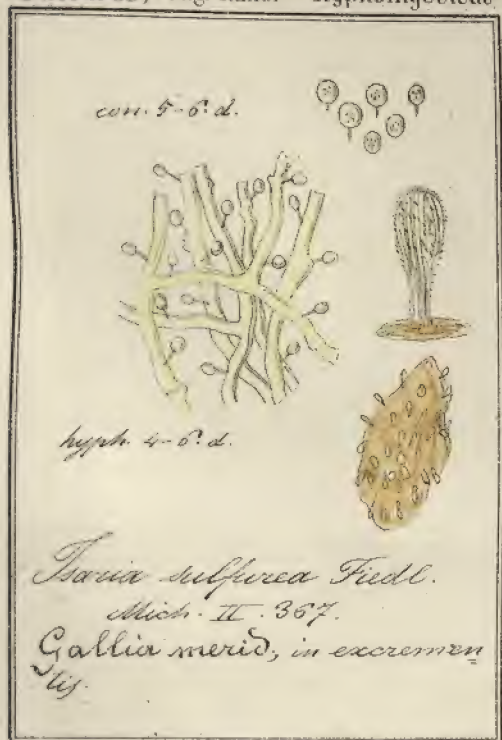 con. 5-6. d.
hyph. 4-6. d.
Isaria sulfurea Fiedl.
Mich. II. 367.
Gallia merid, in excremen
tis.